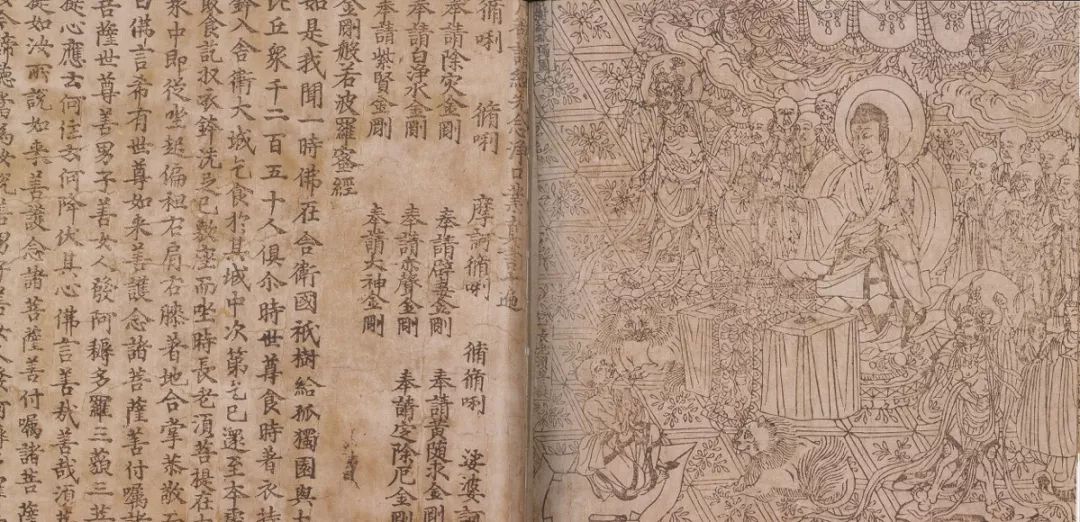 誦經先念淨口業真言遍
脩唎 脩唎 摩訶脩唎 脩脩唎 娑婆訶
奉請除灾金剛 奉請辟毒金剛 奉請黃隨求金剛
奉請白淨水金剛 奉請赤聲金剛 奉請定除厄金剛
奉請紫賢金剛 奉請大神金剛
金剛般若波羅蜜經
如是我聞一時佛在舍衛國祇樹給孤獨園與大
比丘衆千二百五十人俱尒時世尊食時著衣持
鉢入舍衛大城乞食於其城中次第乞已還至本處
飯食訖収衣鉢洗足已敷座而坐時長老湏菩提在大
衆中即從坐起偏袒右肩右膝著地合掌恭敬而
白佛言希有世尊如来善護念諸菩薩善付囑諸
菩薩世尊善男子善女人發阿耨多羅三藐三菩
提心應云何住云何降伏其心佛言善哉善哉湏菩
提如汝所說如来善護念諸菩薩善付囑諸菩薩
諦聽當為汝說善男子善女人發阿耨多羅